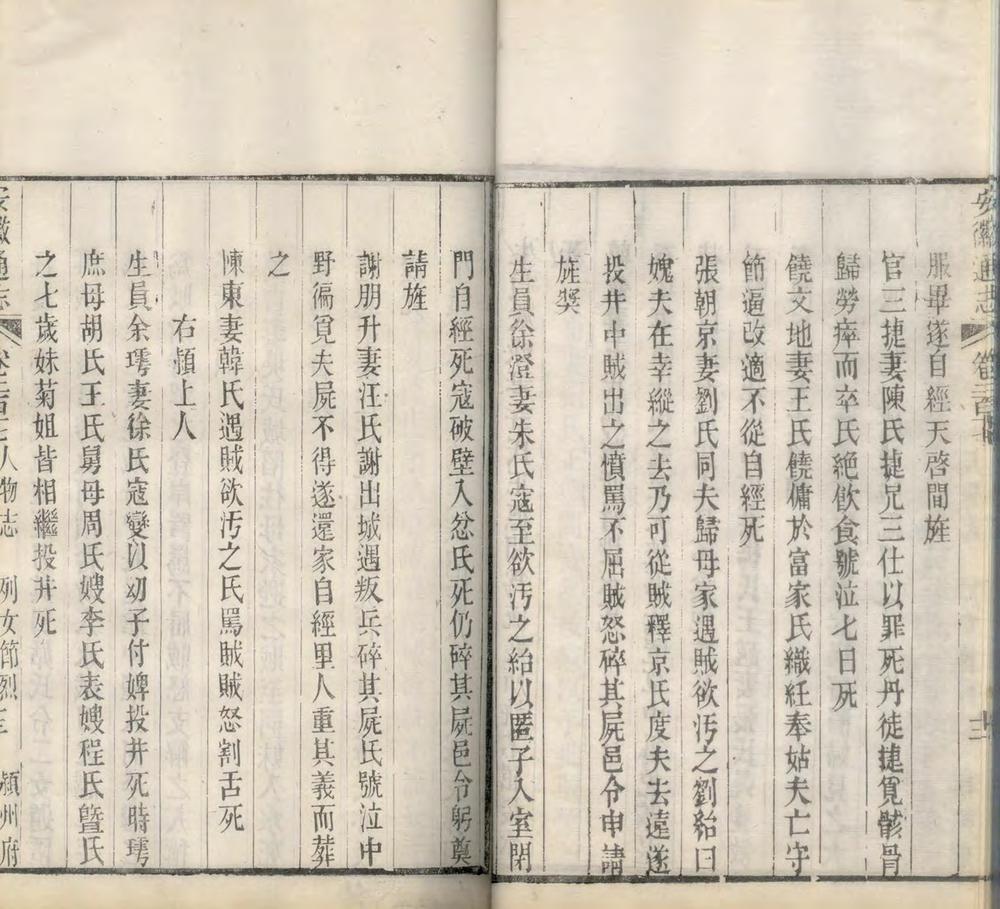 安徽通志
服畢遂自經天啓間旌
官三捷妻陳氏捷兄三仕以罪死丹徒捷覓骸骨
歸勞瘁而卒氏絶飮食號泣七日死
饒文地妻王氏饒傭於富家氏織紝奉姑夫亡守
節逼改適不從自經死
張朝京妻劉氏同夫歸母家遇賊欲汚之劉紿曰
媿夫在幸縱之去乃可從賊釋京氏度夫去遠遂
投井中賊出之憤罵不屈賊怒碎其屍邑令申請
旌奬
生員徐澄妻朱氏寇至欲汚之紿以匿子入室閉
門自經死寇破壁入忿氏死仍碎其屍邑令躬奠
請旌
謝朋升妻汪氏謝出城遇叛兵碎其屍氏號泣中
野徧覓夫屍不得遂還家自經里人重其義而葬
之
陳東妻韓氏遇賊欲汚之氏罵賊賊怒割舌死
右潁上人
生員余㻿妻徐氏寇變以幼子付婢投井死時㻿
庶母胡氏王氏舅母周氏嫂李氏表嫂程氏曁氏
之七歲妹菊姐皆相繼投井死
安徽通志 人物志 列女節烈 潁州府